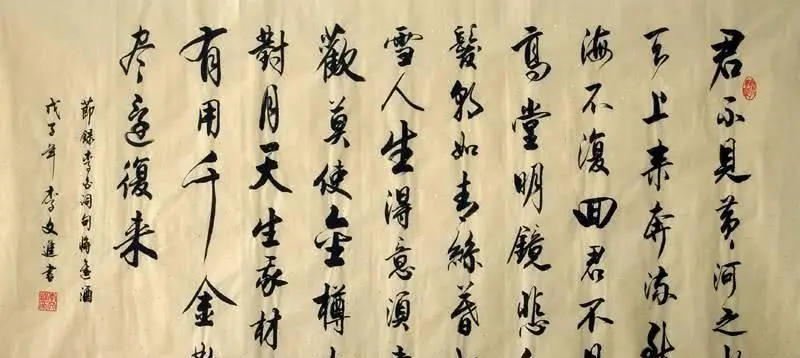 君不见黄河之
天上来奔流
海不復回君不
高堂明鏡悲
髮朝如青絲暮
雪人生得意須
歡莫使金樽
對月天生我材
有用千金
尽還復来
節録李白詞句將進酒
戊子年 李文進書